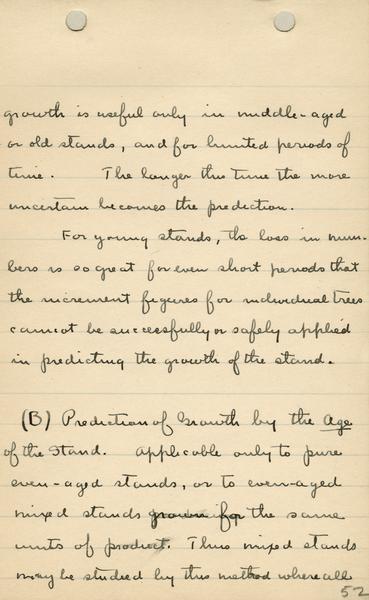 growth is useful only in middle-aged
or old stands, and for limited periods of
time. The longer this time the more
uncertain becomes the prediction.
For young stands, the loss in num-
bers is so great for even short periods that
the increment figures for individual trees
cannot be successfully or safely applied
in predicting the growth of the stand.
(B) Prediction of Growth by the Age
of the Stand. Applicable only to pure
even-aged stands, or to even-aged
mixed stands grown for the same
units of product. Thus mixed stands
may be studied by this method where all
52